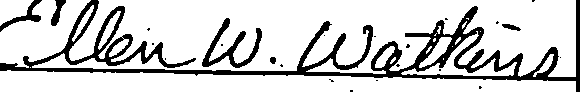 Ellen W. Watkins